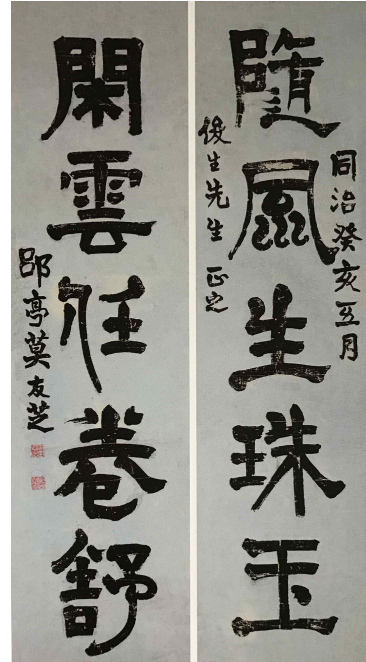 隨風生珠玉
同治癸亥五月
俊生先生正之
閑雲任卷舒
郘亭莫友芝